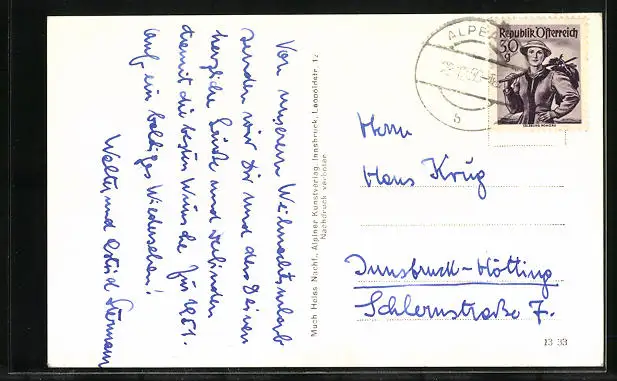 Von unserem Weihnachtsurlaub
senden wir Dir und den Deinen
herzliche Grüße und verbinden
damit die besten Wünsche für 1951.
Auf ein baldiges Wiedersehen!
Walter und
Much Heiss Nachf., Alpiner Kunstverlag, Innsbruck, Leopoldstr. 12
Nachdruck verboten
ALPBA
b
Republik Österreich
30
g
Herrn
Hans Krug
Innsbruck-Hötting
Schlernstraße 7.
13 33